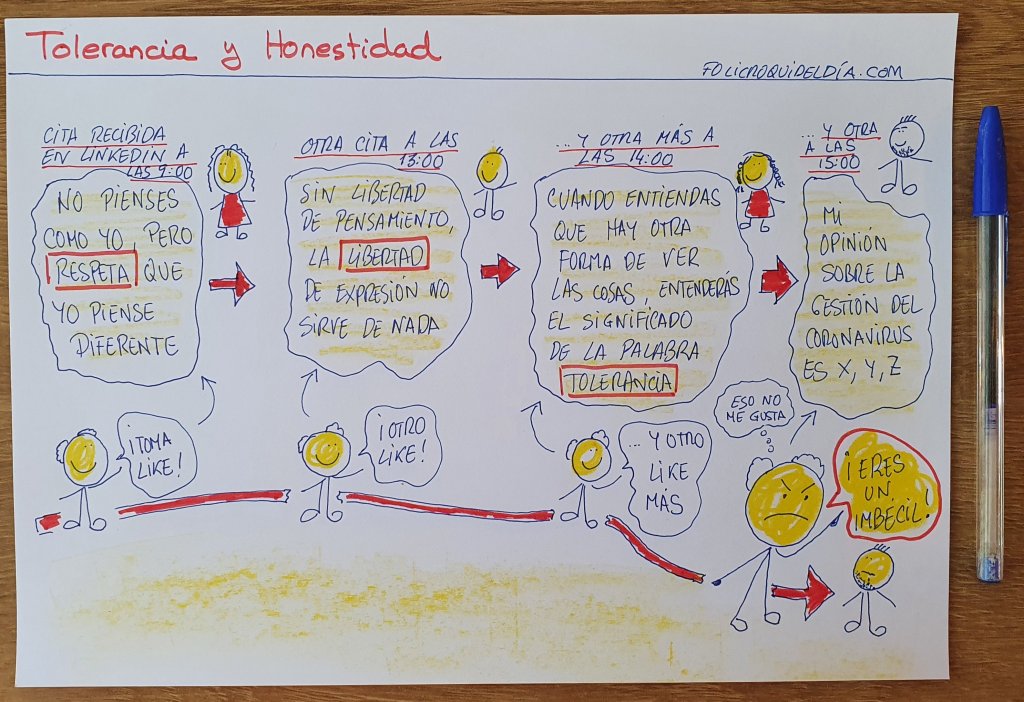 Tolerancia y Honestidad
FOLICROQUIDELDÍA.COM
CITA RECIBIDA
EN LINKEDIN A
LAS 9:00
NO PIENSES
COMO YO, PERO
RESPETA QUE
YO PIENSE
DIFERENTE
OTRA CITA A LAS
13:00
SIN LIBERTAD
DE PENSAMIENTO,
LA LIBERTAD
DE EXPRESIÓN NO
SIRVE DE NADA
... Y OTRA MÁS A
LAS 14:00
CUANDO ENTIENDAS
QUE HAY OTRA
FORMA DE VER
LAS COSAS, ENTENDERÁS
EL SIGNIFICADO
DE LA PALABRA
TOLERANCIA
... Y OTRA
A LAS
15:00
MI
OPINIÓN
SOBRE LA
GESTIÓN DEL
CORONAVIRUS
ES X, Y, Z
¡TOMA
LIKE!
¡OTRO
LIKE!
... Y OTRO
LIKE
MÁS
ESO NO
ME GUSTA
¡ERES
UN
IMBÉCIL!